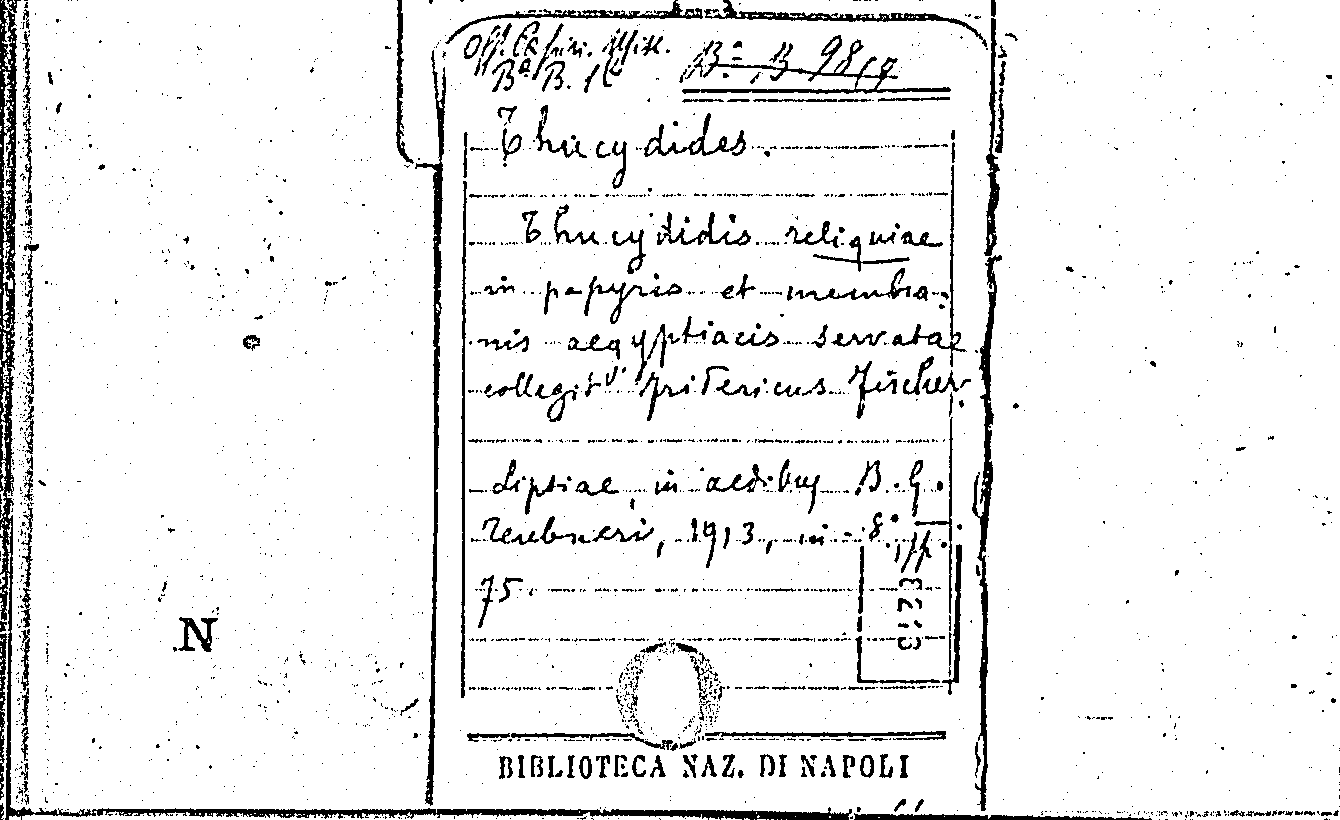 Off. Papiri. Misc. B.ª B. 98/7
Bª B. 16
Thucydides.
Thucydidis reliquiae
in papyris et membra-
nis aegyptiacis servatae
collegit Fridericus Fischer.
Lipsiae, in aedibus B. G.
Teubneri, 1913, in-8.°, pp.
75.
N
BIBLIOTECA NAZ. DI NAPOLI